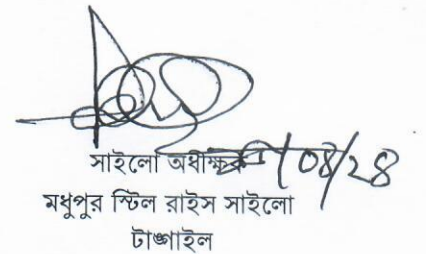 সাইলো অধীক্ষক
মধুপুর স্টিল রাইস সাইলো
টাঙ্গাইল